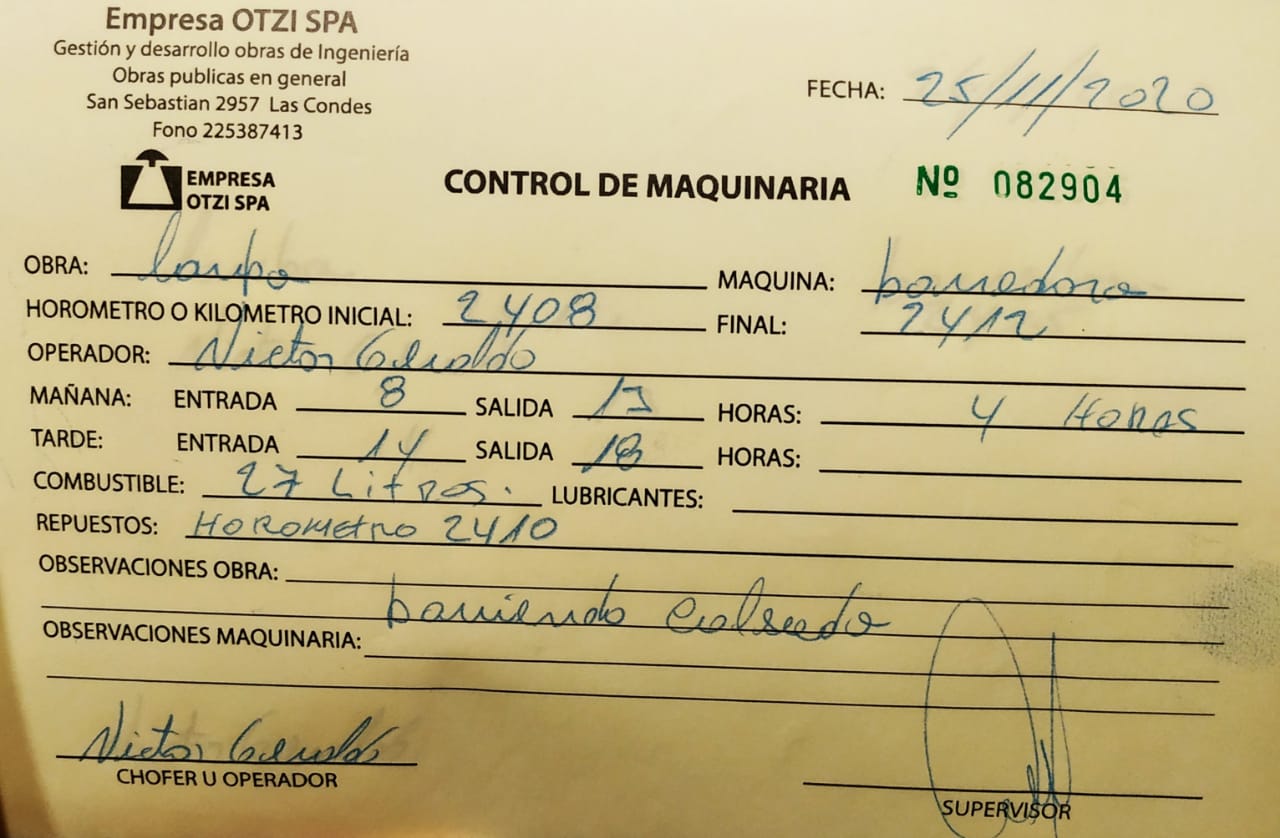 Empresa OTZI SPA
Gestión y desarrollo obras de Ingeniería
Obras publicas en general
San Sebastian 2957 Las Condes
Fono 225387413
FECHA: 25/11/2020
EMPRESA
OTZI SPA
CONTROL DE MAQUINARIA Nº 082904
OBRA: MAQUINA: barredora
HOROMETRO O KILOMETRO INICIAL: 2408 FINAL: 2412
OPERADOR: Victor Geraldo
MAÑANA: ENTRADA 8 SALIDA 13 HORAS: 4 Horas
TARDE: ENTRADA 14 SALIDA 18 HORAS:
COMBUSTIBLE: 27 Litros. LUBRICANTES:
REPUESTOS: Horometro 2410
OBSERVACIONES OBRA:
barriendo calsada
OBSERVACIONES MAQUINARIA:
Victor Geraldo
CHOFER U OPERADOR
SUPERVISOR